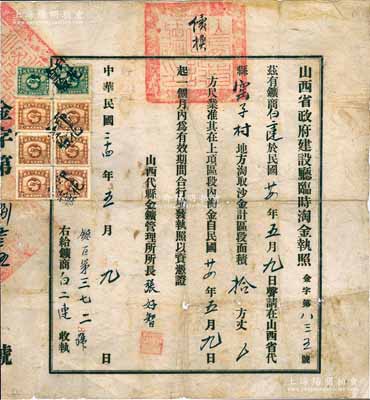 山西省政府建設廳臨時淘金執照 金字第八三五號
茲有鑛商白二連於民國廿四年五月九日聲請在山西省代
縣窑子村地方淘取沙金計區段面積拾方丈
方尺業准其在上項區段內淘金自民國廿四年五月九日
起一個月內為有效期間合行填發執照以資憑證
山西代縣金鑛管理所所長張好智
中華民國二十四年五月九日
右給鑛商白二連收執
第三七二號
金字第
號
上海陽明拍賣